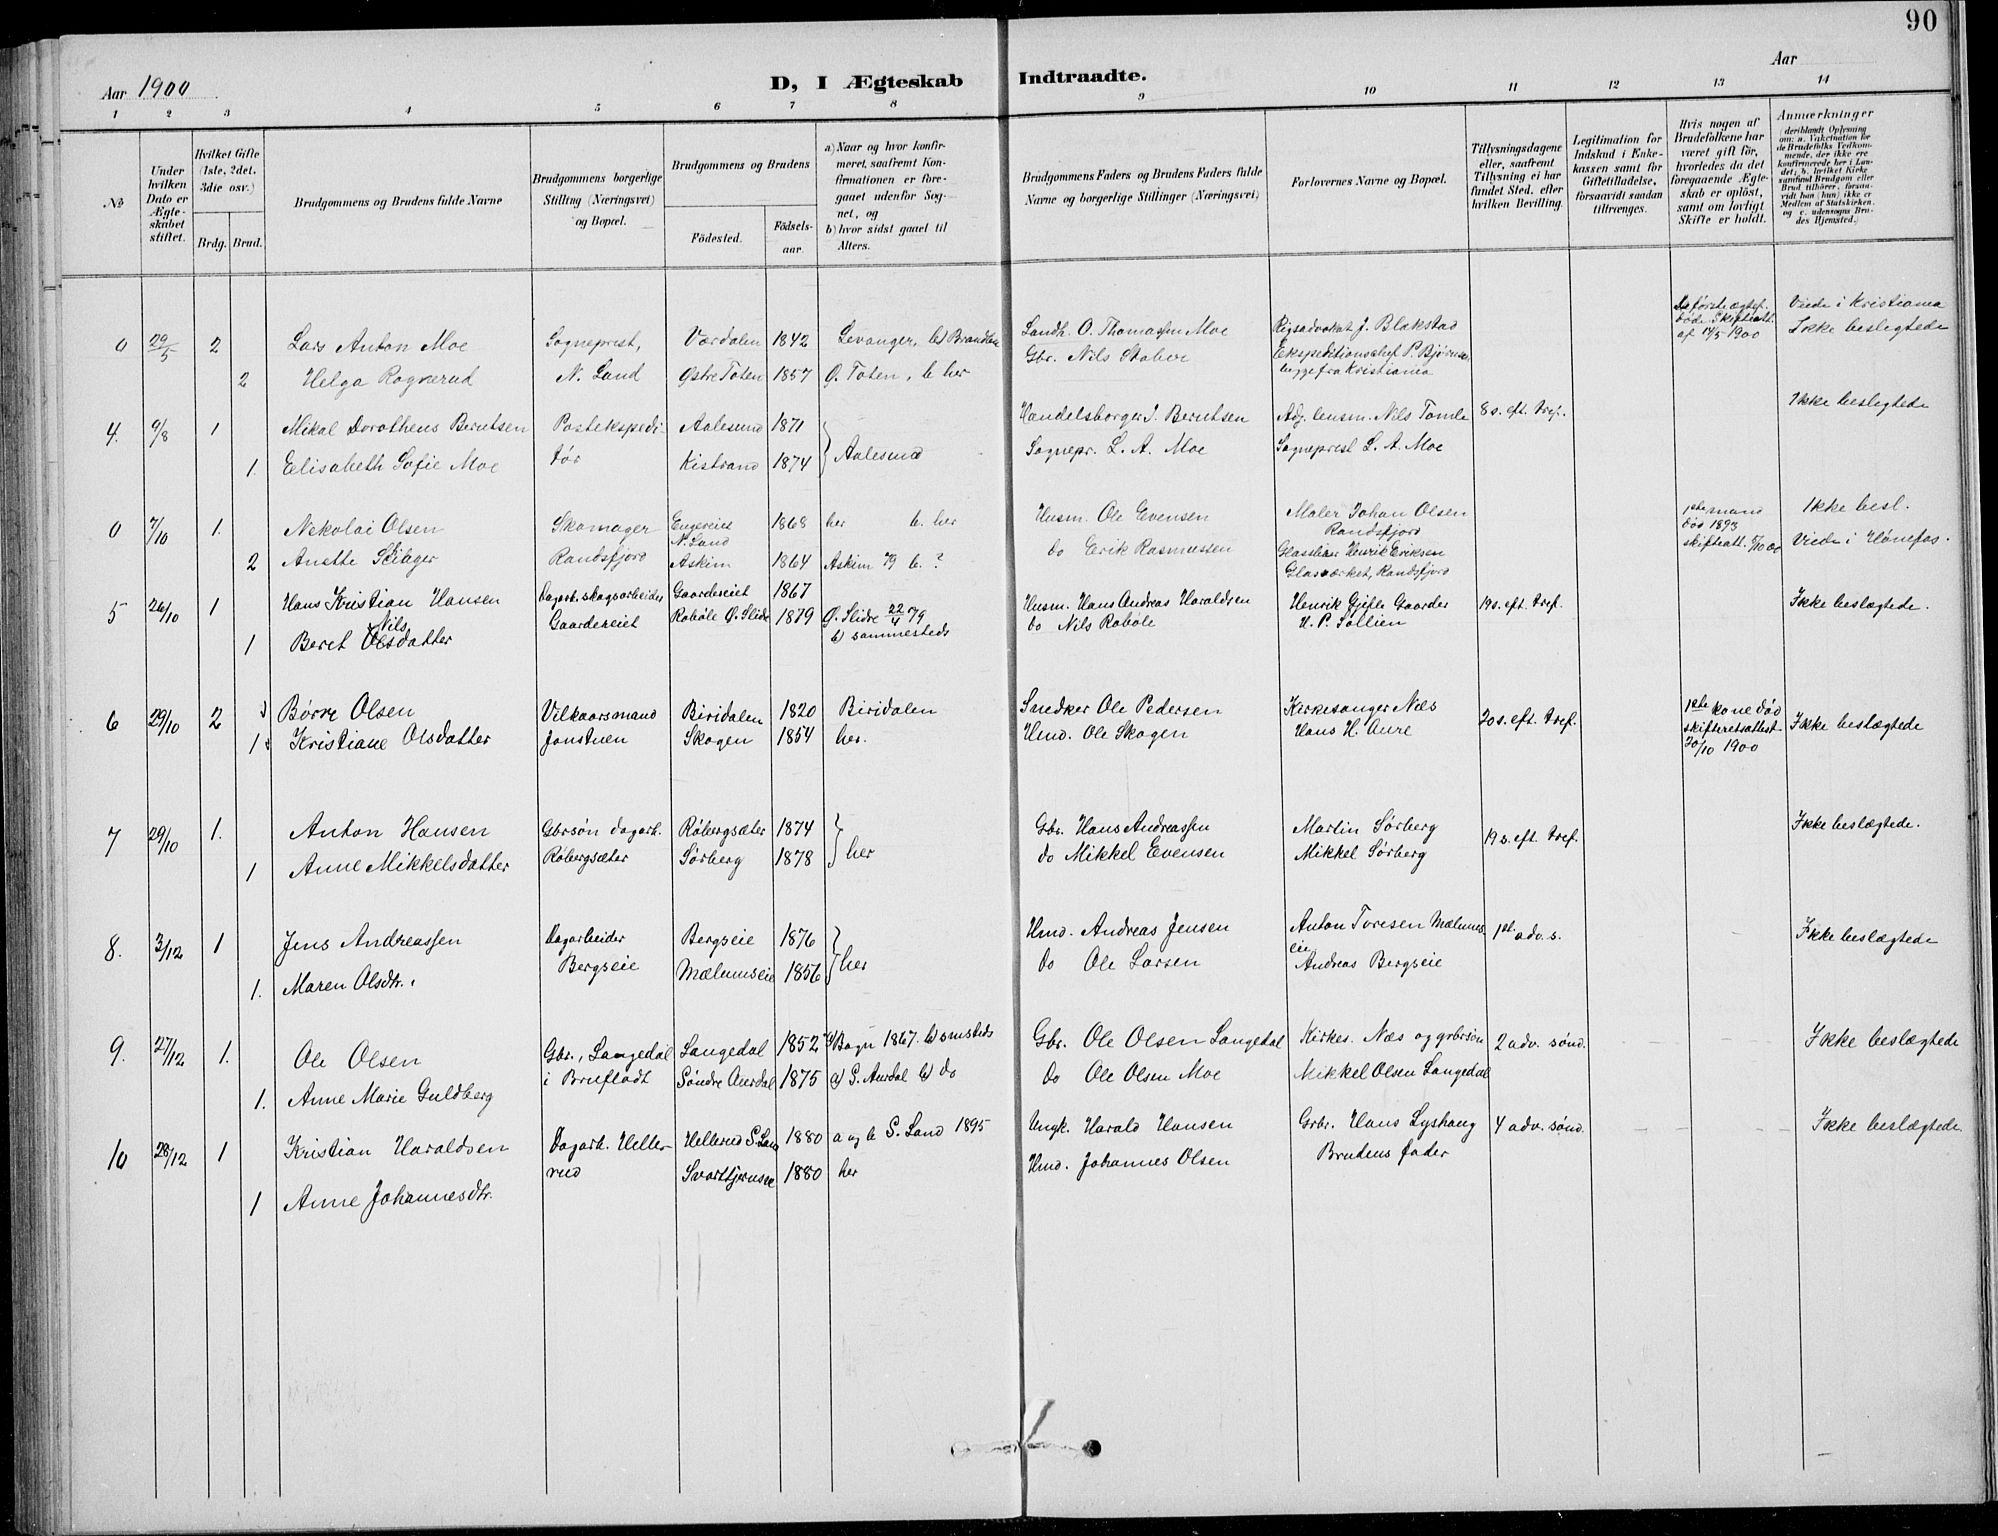 90
Aar 1900
D, I Ægteskab Indtraadte.
Aar
1 2 3 4 5 6 7 8 9 10 11 12 13 14
No
Under hvilken Dato er Ægteskabet stiftet.
Hvilket Gifte (1ste, 2det, 3die osv.)
Brdg. Brud.
Brudgommens og Brudens fulde Navne
Brudgommens borgerlige Stilling (Næringsvei) og Bopæl.
Brudgommens og Brudens
Födested. Födselsaar.
a) Naar og hvor konfirmeret, saafremt Konfirmationen er foregaaet udenför Sognet, og
b) hvor sidst gaaet til Alters.
Brudgommens Faders og Brudens Faders fulde Navne og borgerlige Stillinger (Næringsvei)
Forlovernes Navne og Bopæl.
Tillysningsdagene eller, saafremt Tillysning ei har fundet Sted, efter hvilken Bevilling.
Legitimation for Indskud i Enkekassen samt for Giftetilladelse, forsaavidt saadan tiltrænges.
Hvis nogen af Brudefolkene har været gift för, hvorledes da det foregaaende Ægteskab er oplöst, samt om lovligt Skifte er holdt.
Anmærkninger (deriblandt Oplysning om: a. Vakcination for de Brudefolks Vedkommende, der ikke ere konfirmerede her i Landet; b. hvilket Kirkesamfund Brudgom eller Brud tilhörer, forsaavidt han (hun) ikke er Medlem af Statskirken, og c. udensogns Brudes Hjemsted.)
0 29/5 2 Lars Anton Moe Sogneprest, Værdalen 1842 Levanger, b) Brandbu Landh. O. Thomassen Moe Rigsadvokat J. Blakstad første ægtef. død. Skifteatt. af 14/5 1900 Viede i Kristiania Ikke beslegtede
2 Helga Rognerud N. Land Østre Toten 1857 Ø. Toten, b her Gbr. Nils Stabue Ekspeditionschef P. begge fra Kristiania
4. 9/8 1 Mikal Dorotheus Berntsen Postekspedi- Aalesund 1871 Aalesund Handelsborger J. Berntsen Adj. lensm. Nils Tomle 8 s. eft. tref. Ikke beslegtede
1. Elisabeth Sofie Moe tør Kistrand 1874 Sognepr. L. A. Moe Sogneprest L. A. Moe
0 7/10 1. Nekolai Olsen Skomager Engereiet N. Land 1868 her b. her Husm. Ole Evensen Maler Johan Olsen Randsfjord 1ste mand død 1893 skifteatt. Ikke besl.
2 Anette Randsfjord Askim 1864 Askim 79 b. ? do Erik Rasmussen Henrik Eriksen Glasværket, Randsfjord Viede i Hønefos.
5 26/10 1 Hans Kristian Hansen Dagarb. skogsarbeider Gaardereiet 1867 Husm. Hans Andreas Haraldsen Henrik Gjefle Gaarder 19 s. eft. tref. Ikke beslægtede.
1 Beret Nilsdatter Gaardereiet Robøle Ø. Slidre 1879 Ø. Slidre 22/4 79 b) sammesteds do Nils Robøle H. P. Sollien
6 29/10 2 Børre Olsen Vilkaarsmand Biridalen 1820 Biridalen Snedker Ole Pedersen Kirkesanger Næs 20 s. eft. tref. 1ste kone død skifteretsattest 20/10 1900 Ikke beslægtede
1 Kristiane Olsdatter Jonstuen Skogen 1854 her. Hmd. Ole Skogen Hans H. Aure
7 29/10 1. Anton Hansen Gbrsøn dagarb. Røbergsæter 1874 her Gbr. Hans Andreassen Martin Sørberg 19 s. eft. tref. Ikke beslægtede.
1 Anne Mikkelsdatter Røbergsæter Sørberg 1878 do Mikkel Evensen Mikkel Sørberg
8. 3/12 1 Jens Andreassen Dagarbeider Bergseie 1876 her Hmd. Andreas Jensen Anton Toresen Mælumseie 1ste adv. s. Ikke beslægtede
1. Maren Olsdtr. Bergseie Mælumseie 1856 do Ole Larsen Andreas Bergseie
9. 27/12 1. Ole Olsen Gbr., Langedal Langedal 1852 a) Bagn 1867. b) smsteds Gbr. Ole Olsen Langedal Kirkes. Næs og gbrsøn 2 adv. sønd. Ikke beslægtede
1. Anne Marie Guldberg i Bruflodt Søndre Aurdal 1875 a) S. Aurdal b) do do Ole Olsen Moe Mikkel Olsen Langedal
10 28/12 1 Kristian Haraldsen Dagarb. Helle- Hellerud S. Land 1880 a og b S. Land 1895 Ungk. Harald Hansen Grbr. Hans Lyshaug 4 adv. sønd. Ikke beslægtede
1 Anne Johannesdtr. rud Svarttjernseie 1880 her Hmd. Johannes Olsen Brudens fader